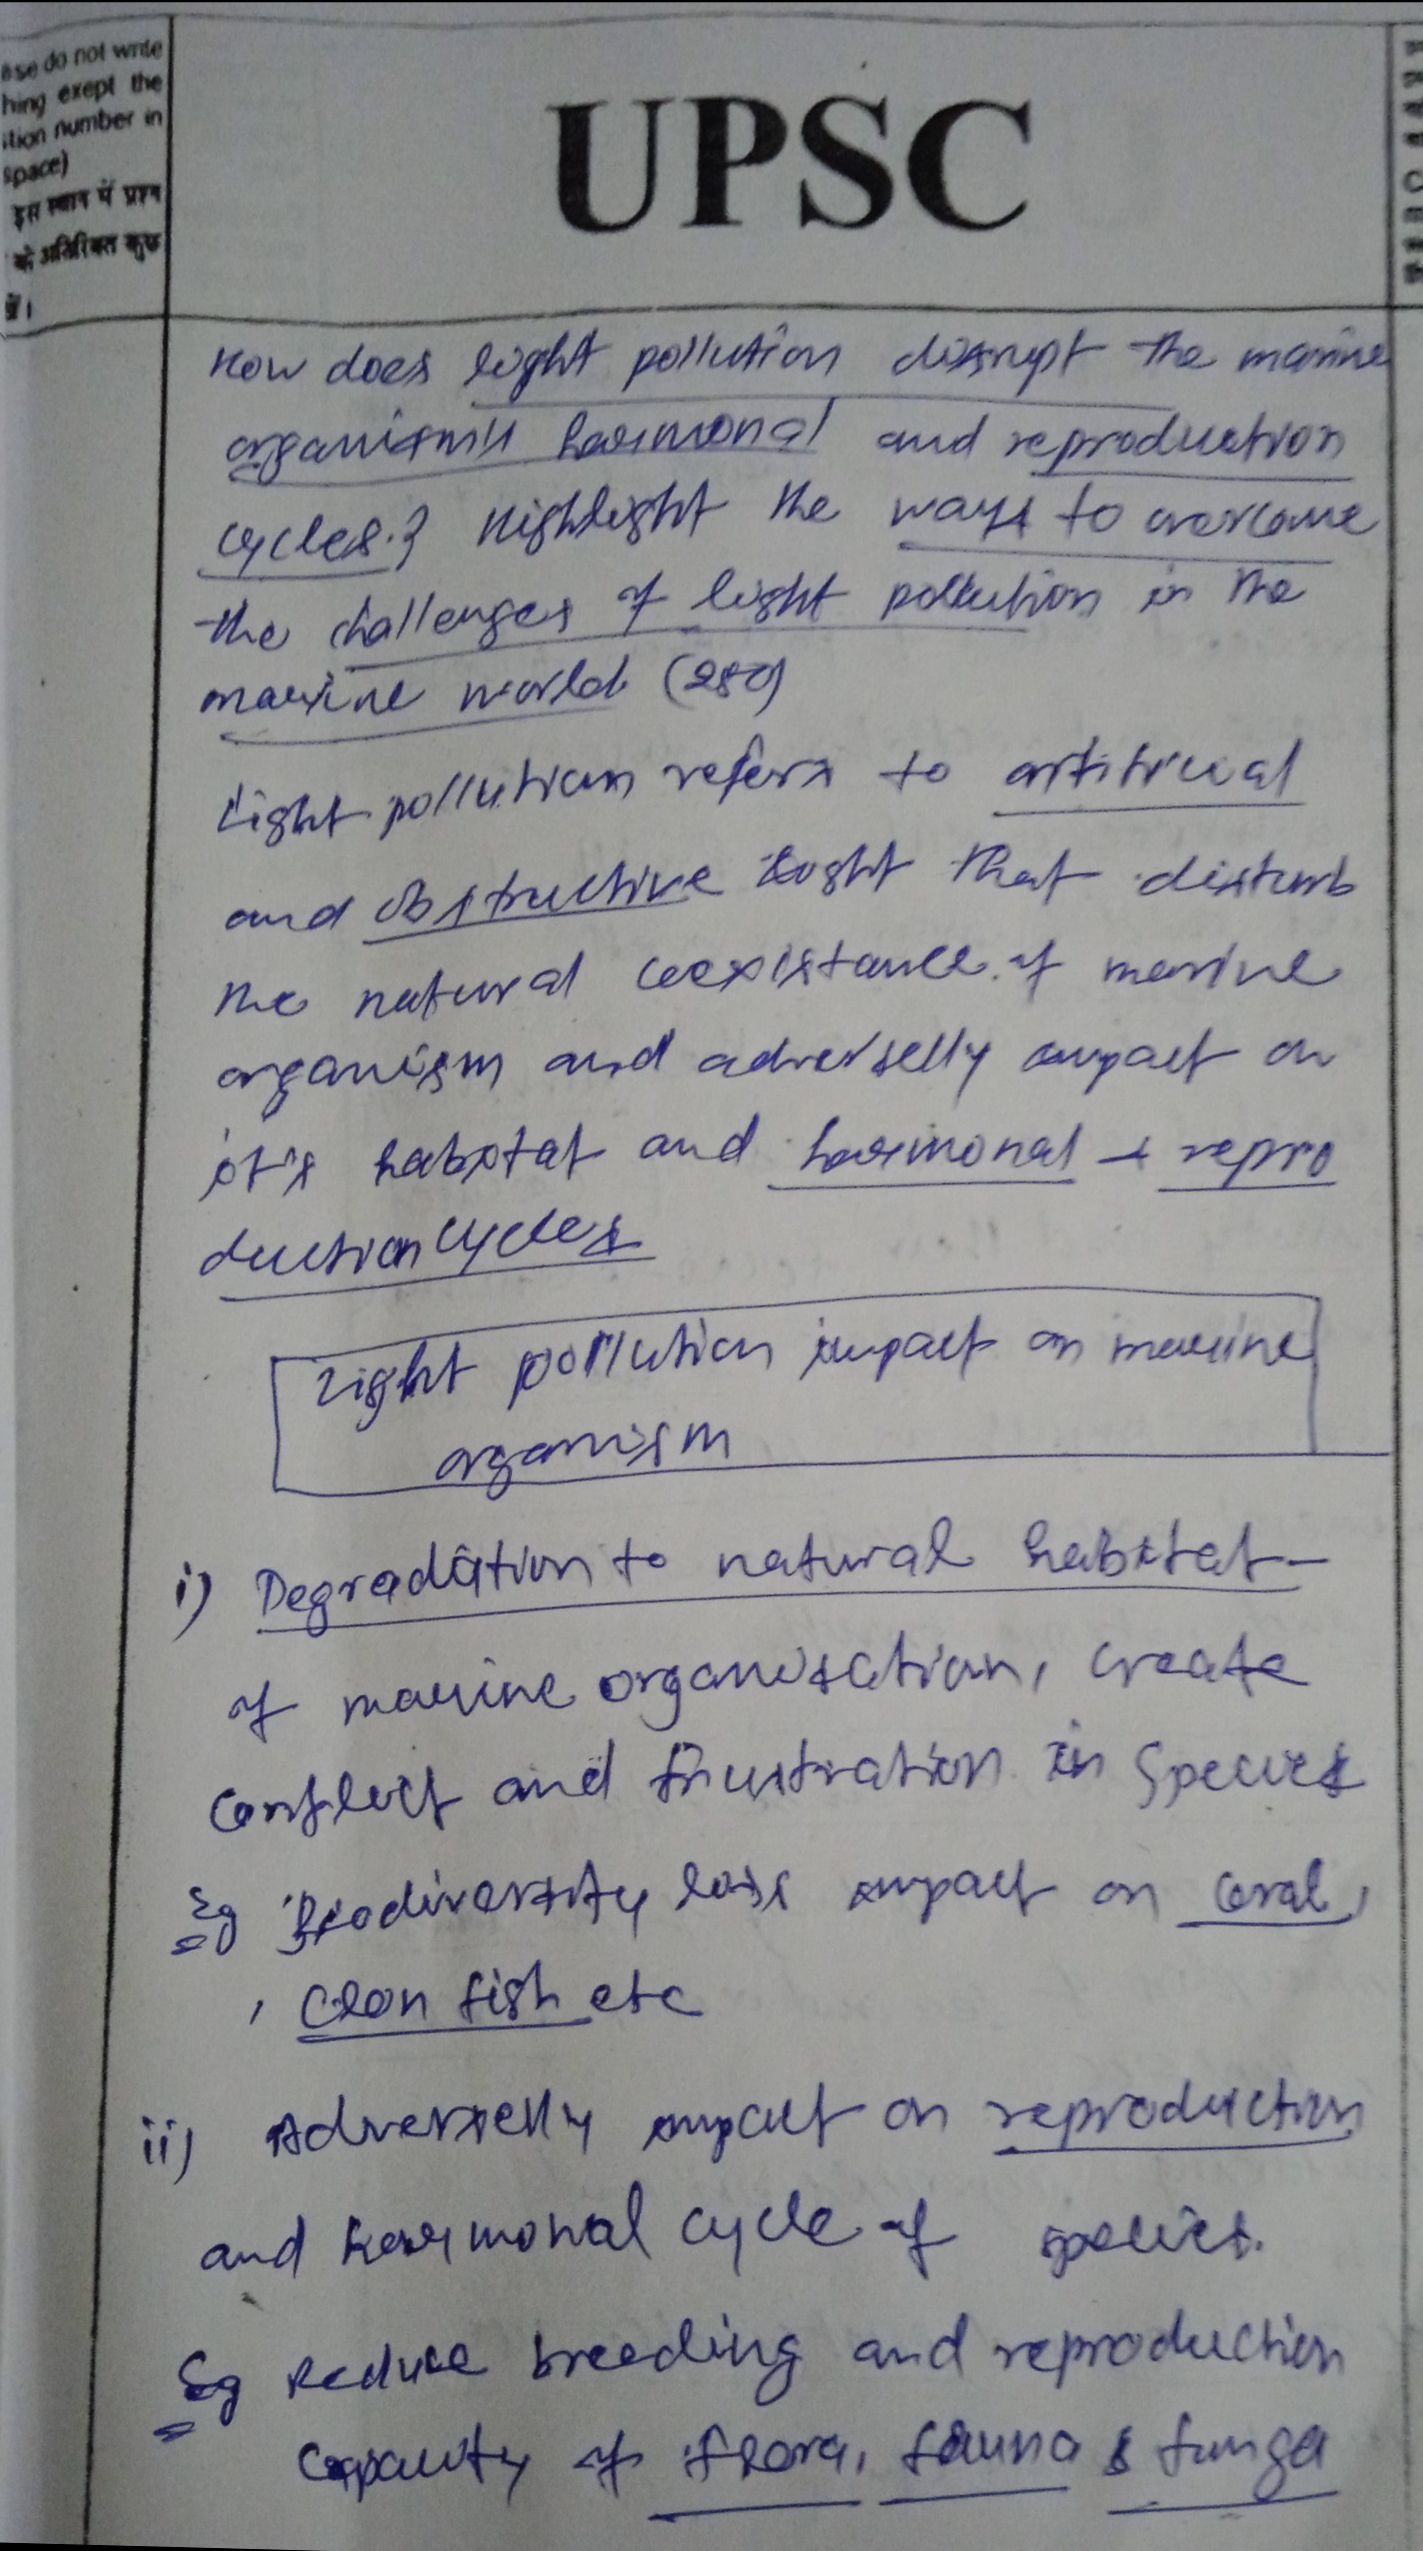 ase do not write
hing exept the
stion number in
space)
इस स्थान में प्रश्न
के अतिरिक्त कुछ
UPSC
How does light pollution disrupt the marine
organism's harmonal and reproduction
cycles.? Highlight the ways to overcome
the challenges of light pollution in the
marine world (250)
Light pollution refers to artificial
and obstructive light that disturb
the natural coexistance of marine
organism and adverselly impact on
it's habitat and harmonal + repro
duction cycles
Light pollution impact on marine
organism
i) Degradation to natural habitat -
of marine organisation, create
conflict and frustration in species
Eg Biodiversity loss impact on coral,
, clon fish etc
ii) Adverselly impact on reproduction
and harmonal cycle of species.
Eg Reduce breeding and reproduction
capacity of flora, fauna & funga